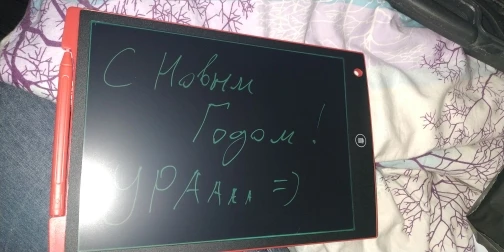 С Новым
Годом!
УРАааа =)